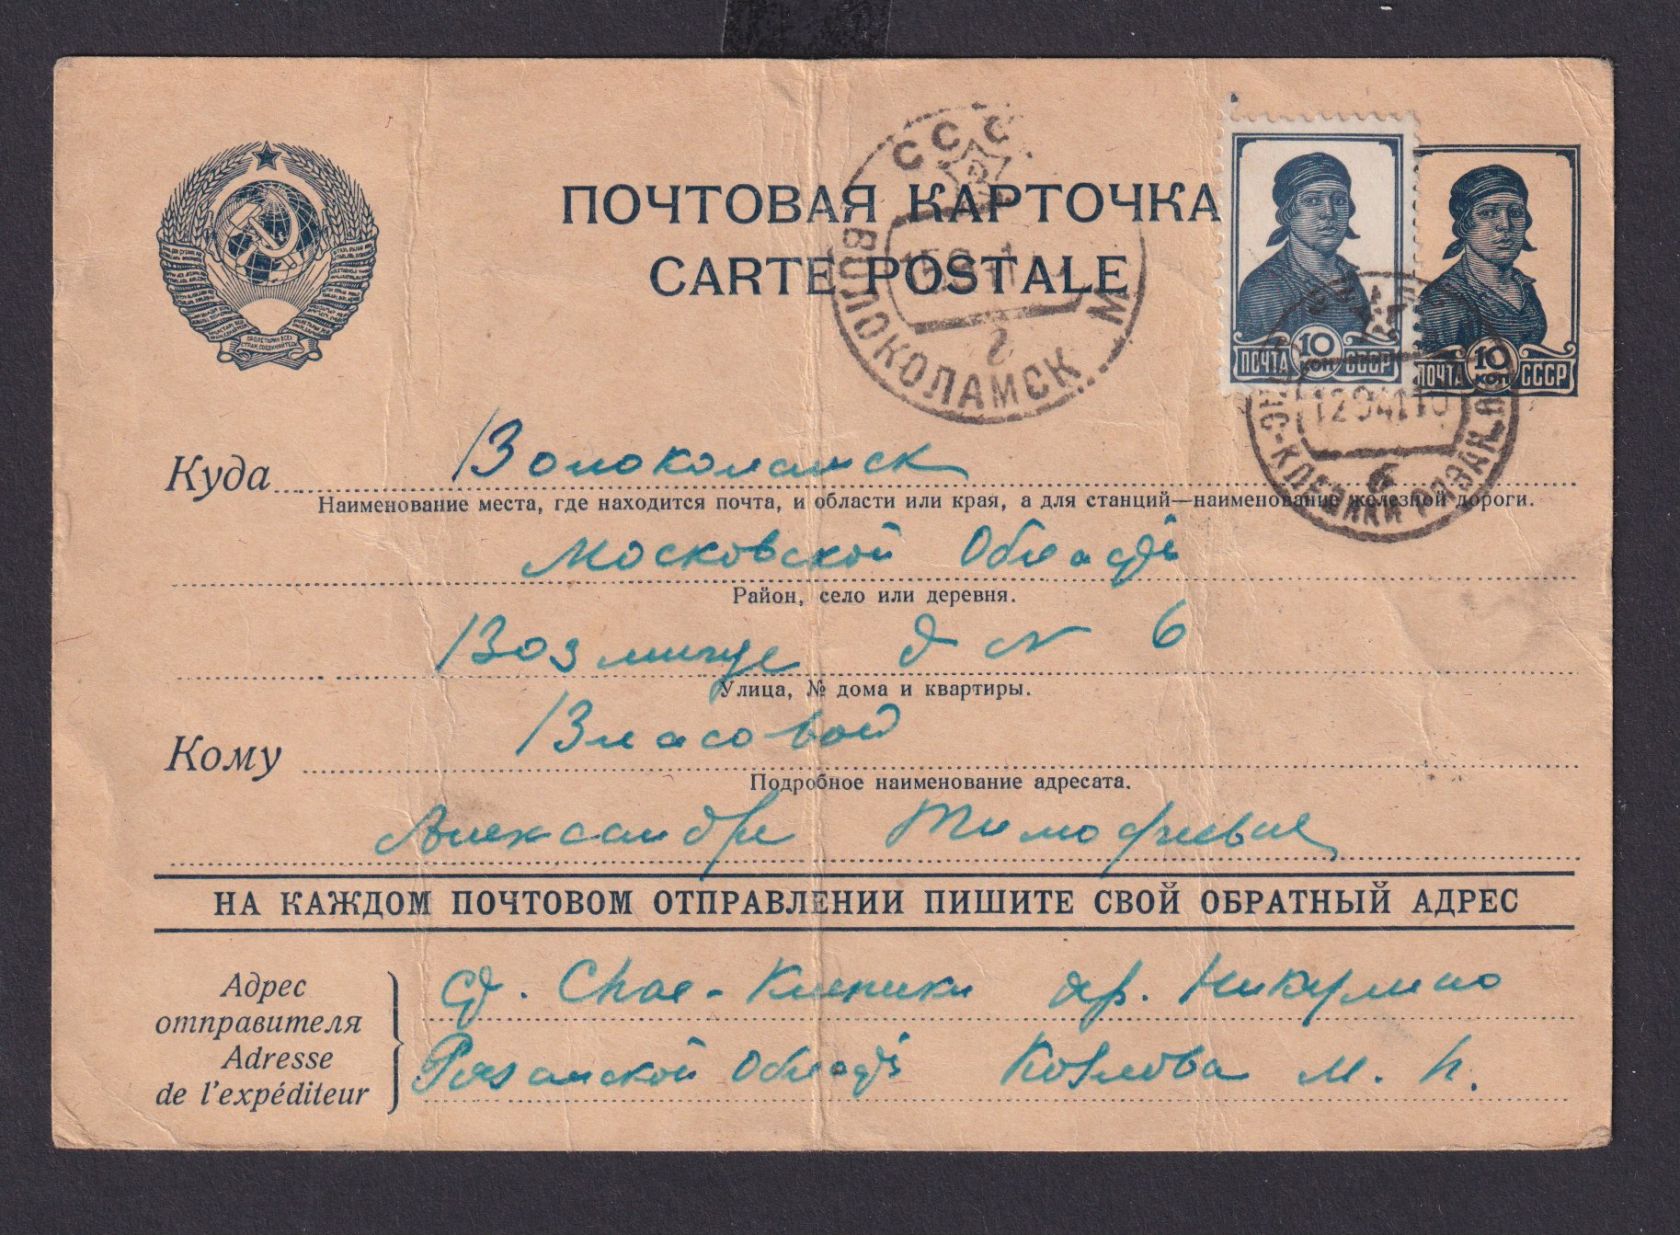 ПОЧТОВАЯ КАРТОЧКА
CARTE POSTALE
СССР
ВОЛОКОЛАМСК М
г
ПОЧТА 10 КОП СССР
ПОЧТА 10 КОП СССР
12 9 41 10
б
Куда Волоколамск
Наименование места, где находится почта, и области или края, а для станций—наименование железной дороги.
Московской Области
Район, село или деревня.
Возмище д N 6
Улица, № дома и квартиры.
Кому Власовой
Подробное наименование адресата.
Александре Тимофеевне
НА КАЖДОМ ПОЧТОВОМ ОТПРАВЛЕНИИ ПИШИТЕ СВОЙ ОБРАТНЫЙ АДРЕС
Адрес отправителя
Adresse de l'expéditeur
Спас-Клепики Никулино
Рязанской Области Козлова М.